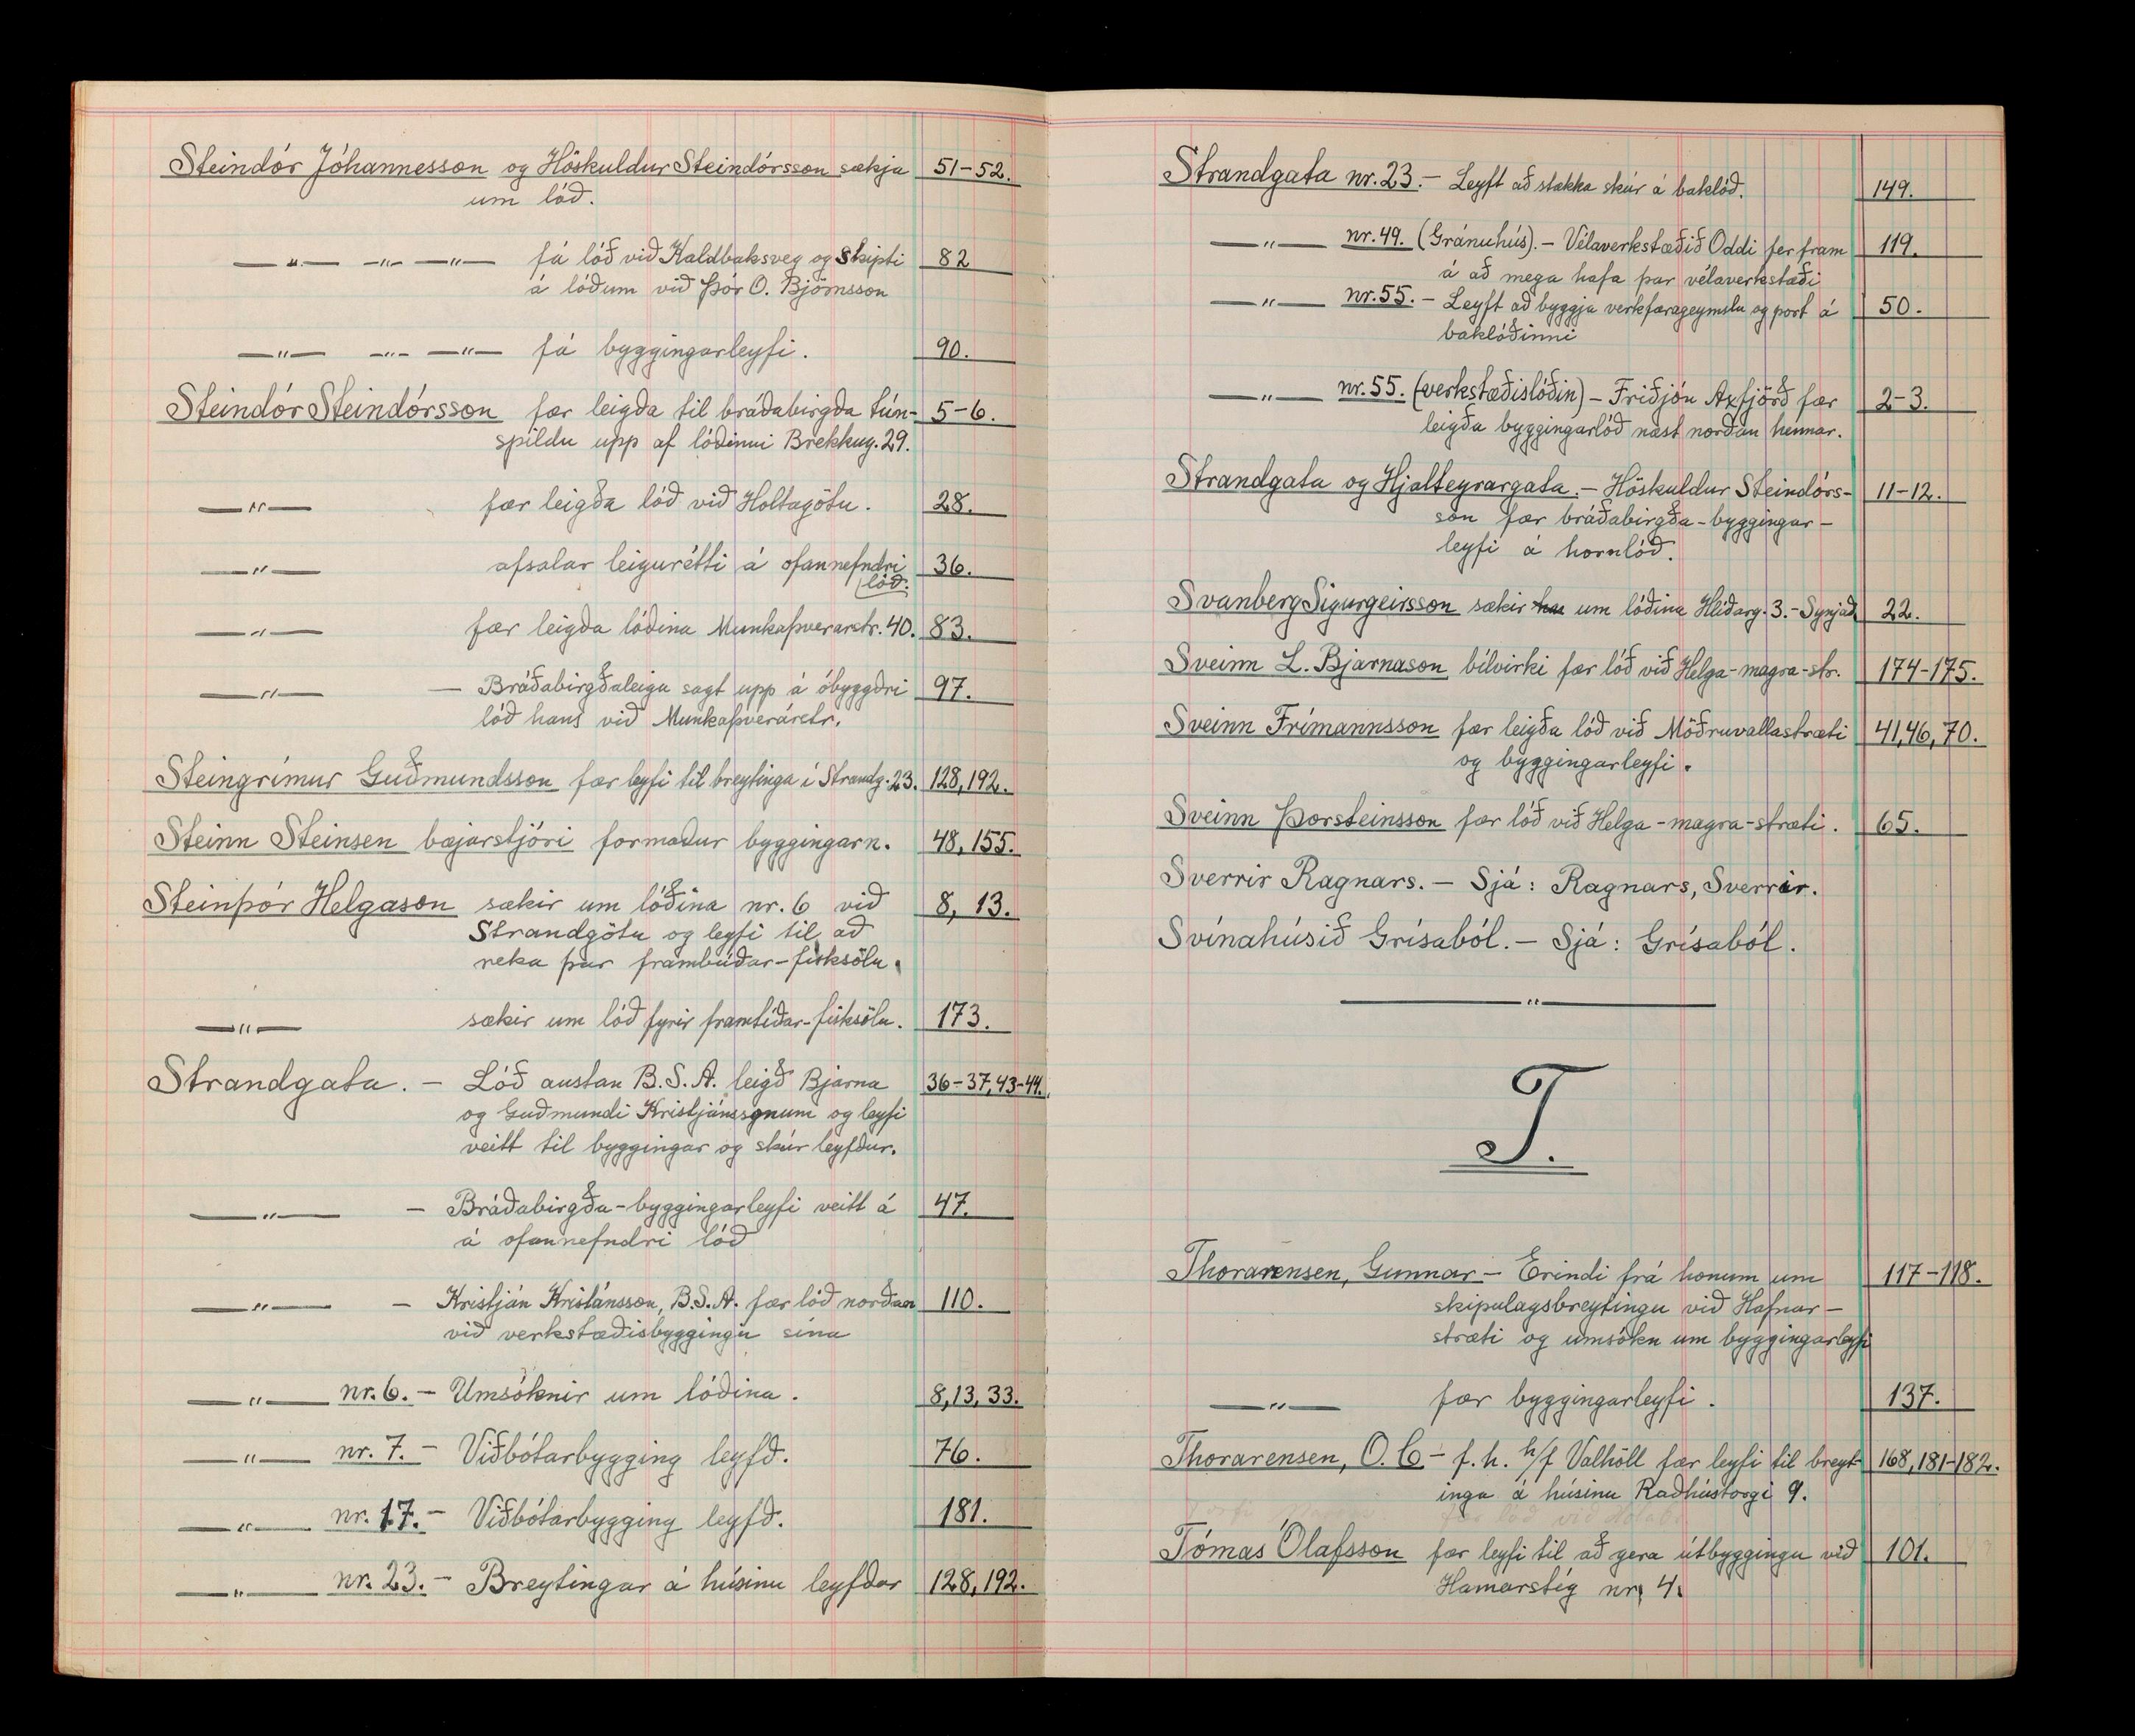 Steindór Jóhannesson og Höskuldur Steindórsson sækja 51-52.
um lóð.
—"— —"— —"— fá lóð við Kaldbaksveg og skipti 82
á lóðum við Þór O. Björnsson
—"— —"— —"— fá byggingarleyfi. 90.
Steindór Steindórsson fær leigða til bráðabirgða tún- 5-6.
spildu upp af lóðinni Brekkug. 29.
—"— fær leigða lóð við Holtagötu. 28.
—"— afsalar leigurétti á ofannefndri 36.
lóð.
—"— fær leigða lóðina Munkaþverarstr. 40. 83.
—"— — Bráðabirgðaleigu sagt upp á óbyggðri 97.
lóð hans við Munkaþverárstr.
Steingrímur Guðmundsson fær leyfi til breytinga í Strandg. 23. 128, 192.
Steinn Steinsen bæjarstjóri formaður byggingarn. 48, 155.
Steinþór Helgason sækir um lóðina nr. 6 við 8, 13.
Strandgötu og leyfi til að
reka þar frambúðar-fisksölu.
—"— sækir um lóð fyrir framtíðar-fisksölu. 173.
Strandgata. — Lóð austan B.S.A. leigð Bjarna 36-37, 43-44.
og Guðmundi Kristjánssonum og leyfi
veitt til byggingar og skúr leyfður.
—"— — Bráðabirgða-byggingarleyfi veitt á 47.
á ofannefndri lóð
—"— — Kristján Kristánsson, B.S.A. fær lóð norðan 110.
við verkstæðisbyggingu sína
—"— nr. 6. — Umsóknir um lóðina. 8, 13, 33.
—"— nr. 7. — Viðbótarbygging leyfð. 76.
—"— nr. 17. — Viðbótarbygging leyfð. 181.
—"— nr. 23. — Breytingar á húsinu leyfðar 128, 192.
Strandgata nr. 23. — Leyft að stækka skúr á baklóð. 149.
—"— nr. 49. (Gránuhús). — Vélaverkstæðið Oddi fer fram 119.
á að mega hafa þar vélaverkstæði
—"— nr. 55. — Leyft að byggja verkfærageymslu og port á 50.
baklóðinni
—"— nr. 55. (verkstæðislóðin) — Friðjón Axfjörð fær 2-3.
leigða byggingarlóð næst norðan hennar.
Strandgata og Hjalteyrargata. — Höskuldur Steindórs- 11-12.
son fær bráðabirgða-byggingar-
leyfi á hornlóð.
Svanberg Sigurgeirsson sækir um lóðina Hlíðarg. 3. — Synjað. 22.
Sveinn L. Bjarnason bílvirki fær lóð við Helga-magra-str. 174-175.
Sveinn Frímannsson fær leigða lóð við Möðruvallastræti 41, 46, 70.
og byggingarleyfi.
Sveinn Þorsteinsson fær lóð við Helga-magra-stræti. 65.
Sverrir Ragnars. — Sjá: Ragnars, Sverrir.
Svínahúsið Grísaból. — Sjá: Grísaból.
—"—
T.
Thorarensen, Gunnar — Erindi frá honum um 117-118.
skipulagsbreytingu við Hafnar-
stræti og umsókn um byggingarleyfi
—"— fær byggingarleyfi. 137.
Thorarensen, O. C. — f. h. h/f Valhöll fær leyfi til breyt- 168, 181-182.
inga á húsinu Raðhústorgi 9.
Tómas Ólafsson fær leyfi til að gera útbyggingu við 101.
Hamarstíg nr. 4.